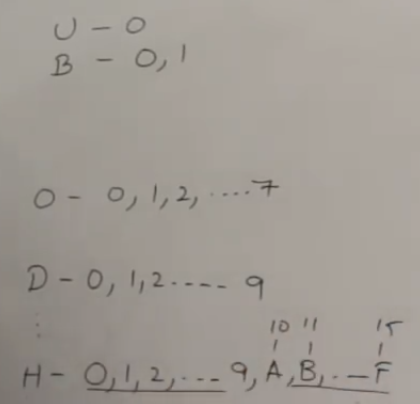 U - 0
B - 0, 1
O - 0, 1, 2, ....7
D - 0, 1, 2 ---- 9
10 11 15
H - 0, 1, 2, ... 9, A, B, .-- F